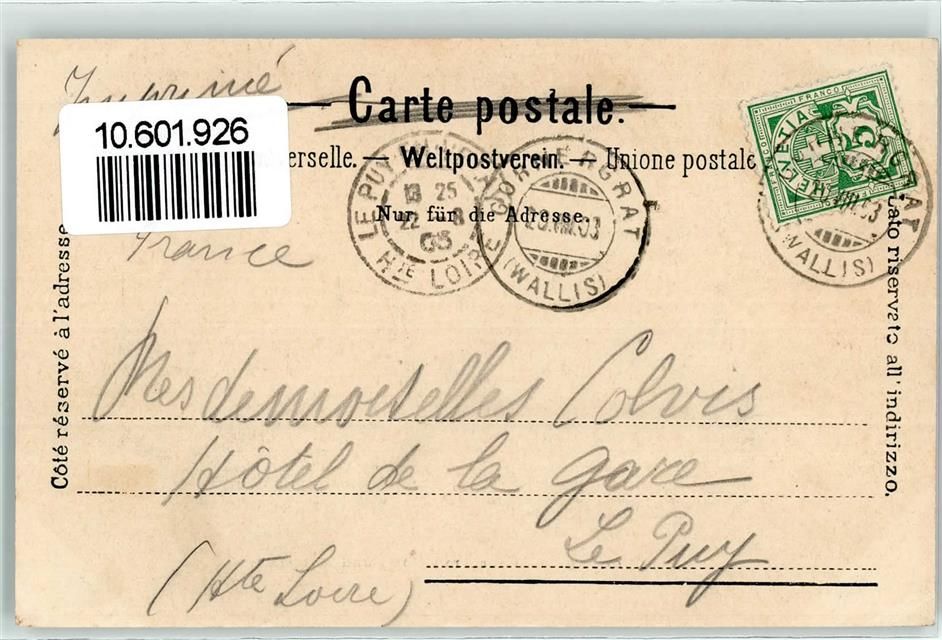 Imprimé
Carte postale.
10.601.926
erselle. — Weltpostverein. — Unione postale
Nur für die Adresse.
France
Côté réservé à l'adresse
Lato riservato all'indirizzo.
FRANCO
HELVETIA
5
LE PUY
13 25
22 8
03
HTE LOIRE
GORNERGRAT
20.VIII.03
(WALLIS)
GRAT
VIII.03
(WALLIS)
Mesdemoiselles Colvis
Hôtel de la Gare
Le Puy
(Hte Loire)